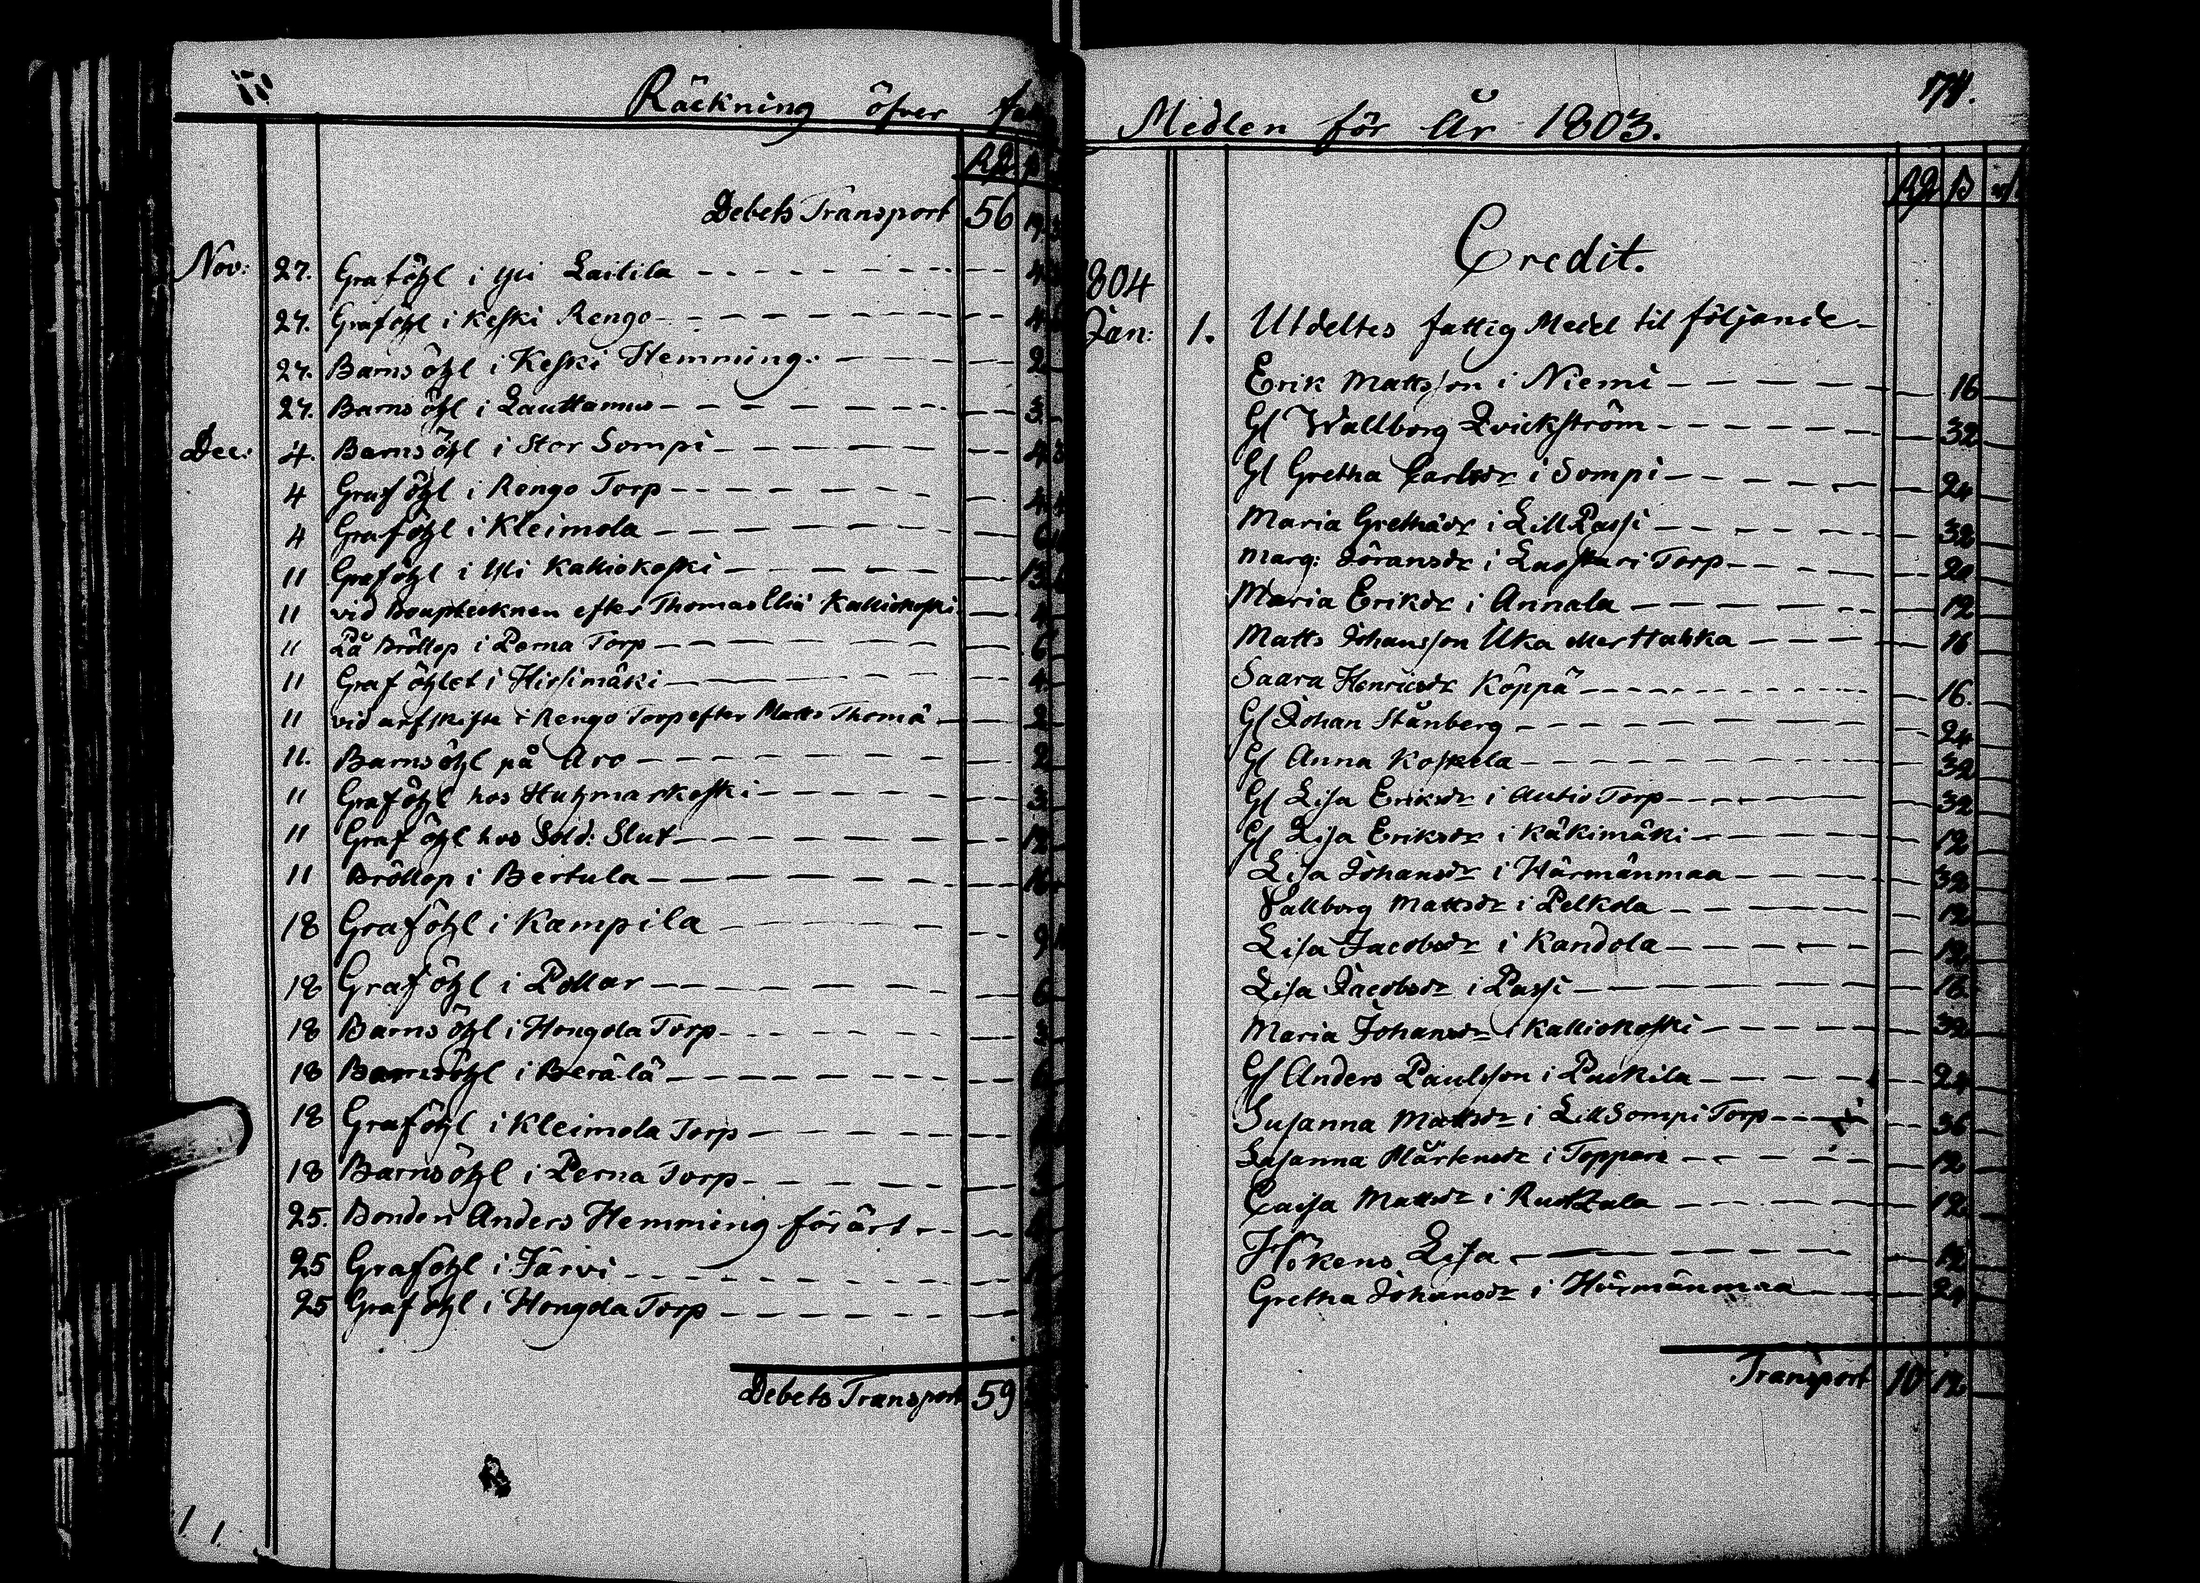 Räckning öfver
RD
Debets Transport 56 19 3
Nov: 27. Graföhl i Yli Laitila 4
27. Graföhl i Keski Rengo 4
27. Barnsöhl i Keski Hemming: 2
27. Barnsöhl i Lauttamus 3
Dec: 4. Barnsöhl i Stor Sompi 4
4 Graföhl i Rengo Torp 4
4 Graföhl i Kleimola
11 Graföhl i Yli Kalliokoski 13
11 vid efter Thomas Eliæ Kalliokoski 4
11 På Bröllop i Perna Torp 6
11 Graföhlet i Hirsimäki 4
11 vid arfskifte i Rengo Torp efter Matts Thomæ 2
11. Barnsöhl på Aro 2
11 Graföhl hos Huhmarkoski 3
11 Graföhl hos Sold: Slut 12
11 Bröllop i Bertula 16
18 Graföhl i Kampila 9
18 Graföhl i Pollar 6
18 Barnsöhl i Hongola Torp 3
18 Barnsöhl i Perälä 6
18 Graföhl i Kleimola Torp
18 Barnsöhl i Perna Torp 3
25. Bonden Anders Hemming förärt
25 Graföhl i Järvi
25 Graföhl i Hongola Torp
Debets Transport 59
Medlen för År 1803.
174.
RD ß
Credit.
1804
Jan: 1. Utdeltes fattig Medel til följande
Erik Mattsson i Niemi 16
Gl Wallborg Qvickström 32
Gl Gretha Carlsdr i Sompi 24
Maria Grethædr i Lill Passi 32
Marg: Göransdr i Laskari Torp 20
Maria Eriksdr i Annala 12
Matts Johansson Uka Mertahka 16
Saara Henricsdr Köppä 16.
Gl Johan Stånberg 24
Gl Anna Koskela 32
Gl Lisa Eriksdr i Autio Torp 32
Gl Lisa Eriksdr i Käkimäki 12
Lisa Johansdr i Härmänmaa 32
Vallborg Mattsdr i Pelkola 12
Lisa Jacobsdr i Kandola 12
Lisa Jacobsdr i Passi 16
Maria Johansdr i Kalliokoski 32
Gl Anders Paulsson i Puskila 24
Susanna Mattsdr i Lill Sompi Torp 36
Susanna Mårtensdr i Toppare 12
Caisa Mattsdr i Ruotzala 12
Hökens Lisa 12
Gretha Johansdr i Härmänmaa 24
Transport 10 12